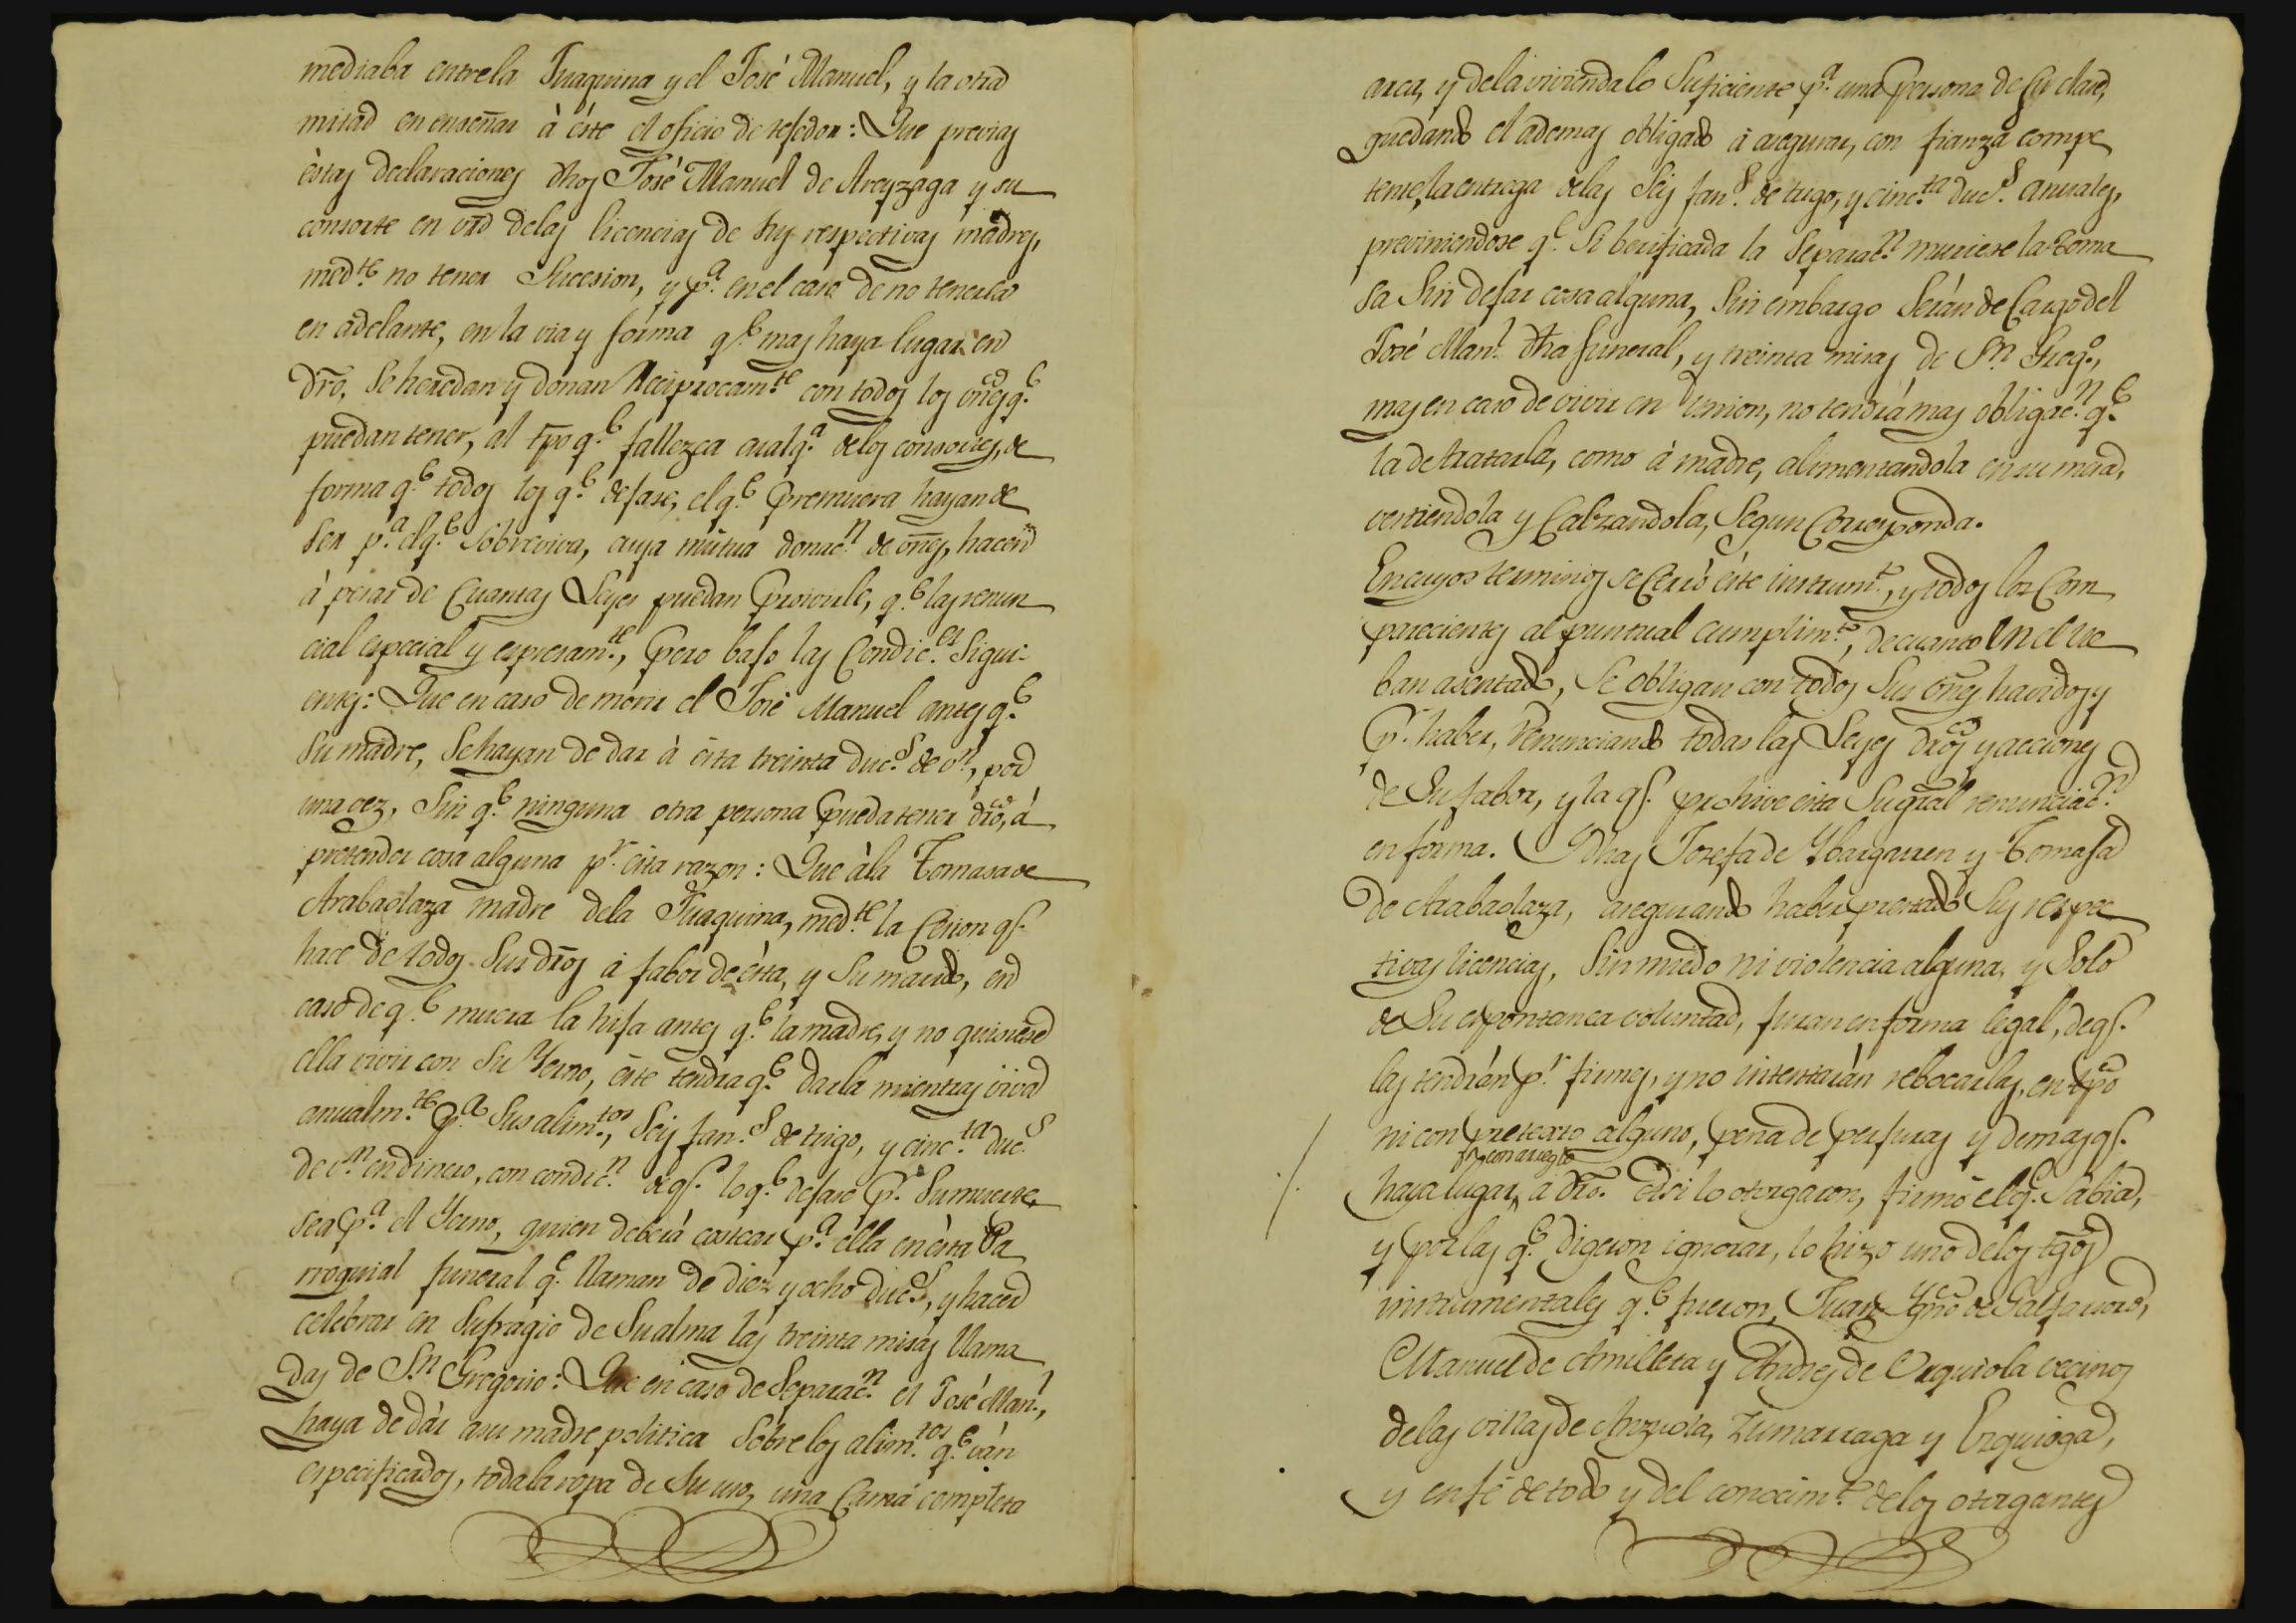 mediaba entre la Juaquina y el José Manuel, y la otra
mitad en enseñar à éste el oficio de tejedor: Que previas
éstas declaraciones dhos José Manuel de Areyzaga y su
consorte en vrd delas licencias de sus respectivas madres,
medte. no tener Sucesion, y pa. en el caso de no tenerla
en adelante, en la via y forma qe. mas haya lugar en
dro, Se heredan y donan Reciprocamte. con todos los vnes qe.
puedan tener, al tpo qe. fallezca cualqa. delos consortes, de
forma qe. todos los qe. dejase, el qe. premuera hayan de
ser pa. el qe. Sobreviva, cuya mutua donacn. de vnes, hacen
à pesar de Cuantas Leyes puedan proivirle, qe. las renun
cial especial y espresamte., pero bajo las Condices. Sigui-
entes: Que en caso de morir el José Manuel antes qe.
Su madre, Se hayan de dar à ésta treinta ducs. de vn., por
una vez, Sin qe. ninguna otra persona pueda tener dro, à
pretender cosa alguna pr. ésta razon: Que àla Tomasa de
Arabaolaza madre dela Juaquina, medte. la Cesion qe.
hace de todos Sus dros à fabor de ésta, y Su marido, en
caso de qe. muera la hija antes qe. la madre, y no quisiese
ella vivir con Su Yerno, éste tendra qe. darla mientras viva
anualmte. pa. Sus alimtos., Seis fans. de trigo, y cincta. ducs.
de vn. en dinero, con condicn. de qe. lo qe. dejare pr. Su muerte,
sea pa. el Yerno, quien deberá costear pa. ella en ésta Pa
rroquial funeral qe. llaman de diez y ocho ducs., y hacer
celebrar en Sufragio de Su alma las treinta misas llama
das de Sn. Gregorio: Que en caso de Separacn. el José Manl.,
haya de dár asu madre politica Sobre los alimtos. qe. ván
especificados, toda la ropa de Su uso, una Cama completa
arca, y dela vivienda lo Suficiente pa. una persona de Su clase,
quedando el ademas obligado à asegurar, con fianza compe
tente, la entrega delas Seis fans. de trigo, y cincta. ducs. anuales,
previniendose qe. Si berificada la Separacn. muriese la Toma
sa Sin dejar cosa alguna, Sin embargo Serán de Cargo del
José Manl. dho funeral, y treinta misas de Sn. Grego.,
mas en caso de vivir en Union, no tendrá mas obligacn. qe.
la de tratarla, como à madre, alimentandola en su mesa,
vestiendola y Calzandola, Segun Corresponda.
En cuyos terminos se Cerró éste instrumto., y todos los Com
parecientes al puntual cumplimto., de cuanto en el lle
ban asentado, Se obligan con todos Sus vnes havidos y
pr. haber, Renunciando todas las Leyes dros y acciones
de Su fabor, y la qe. prohive ésta Su gral renunciacn.
en forma. Y dhas Josefa de Ybarguren y Tomasa
de Arabaolaza, asegurando haber prestado Sus respec
tivas licencias, Sin miedo ni violencia alguna, y Solo
de Su espontanea voluntad, juran en forma legal, de qe.
las tendrán pr. firmes, y no intentarán rebocarlas, en tpo
ni con pretexto alguno, pena de perjuras y demas qe.
con arreglo
haya lugar, a dro. Asi lo otorgaron, firmó el qe. Sabia,
y por las qe. digeron ignorar, lo hizo uno delos tgos
instrumentales qe. fueron, Juan Ygno de Galfarsoro,
Manuel de Amilleta y Andres de Urquiola vecinos
delas villas de Anzuola, Zumarraga y Ezquioga,
y en fé de todo y del conocimto. delos otorgantes